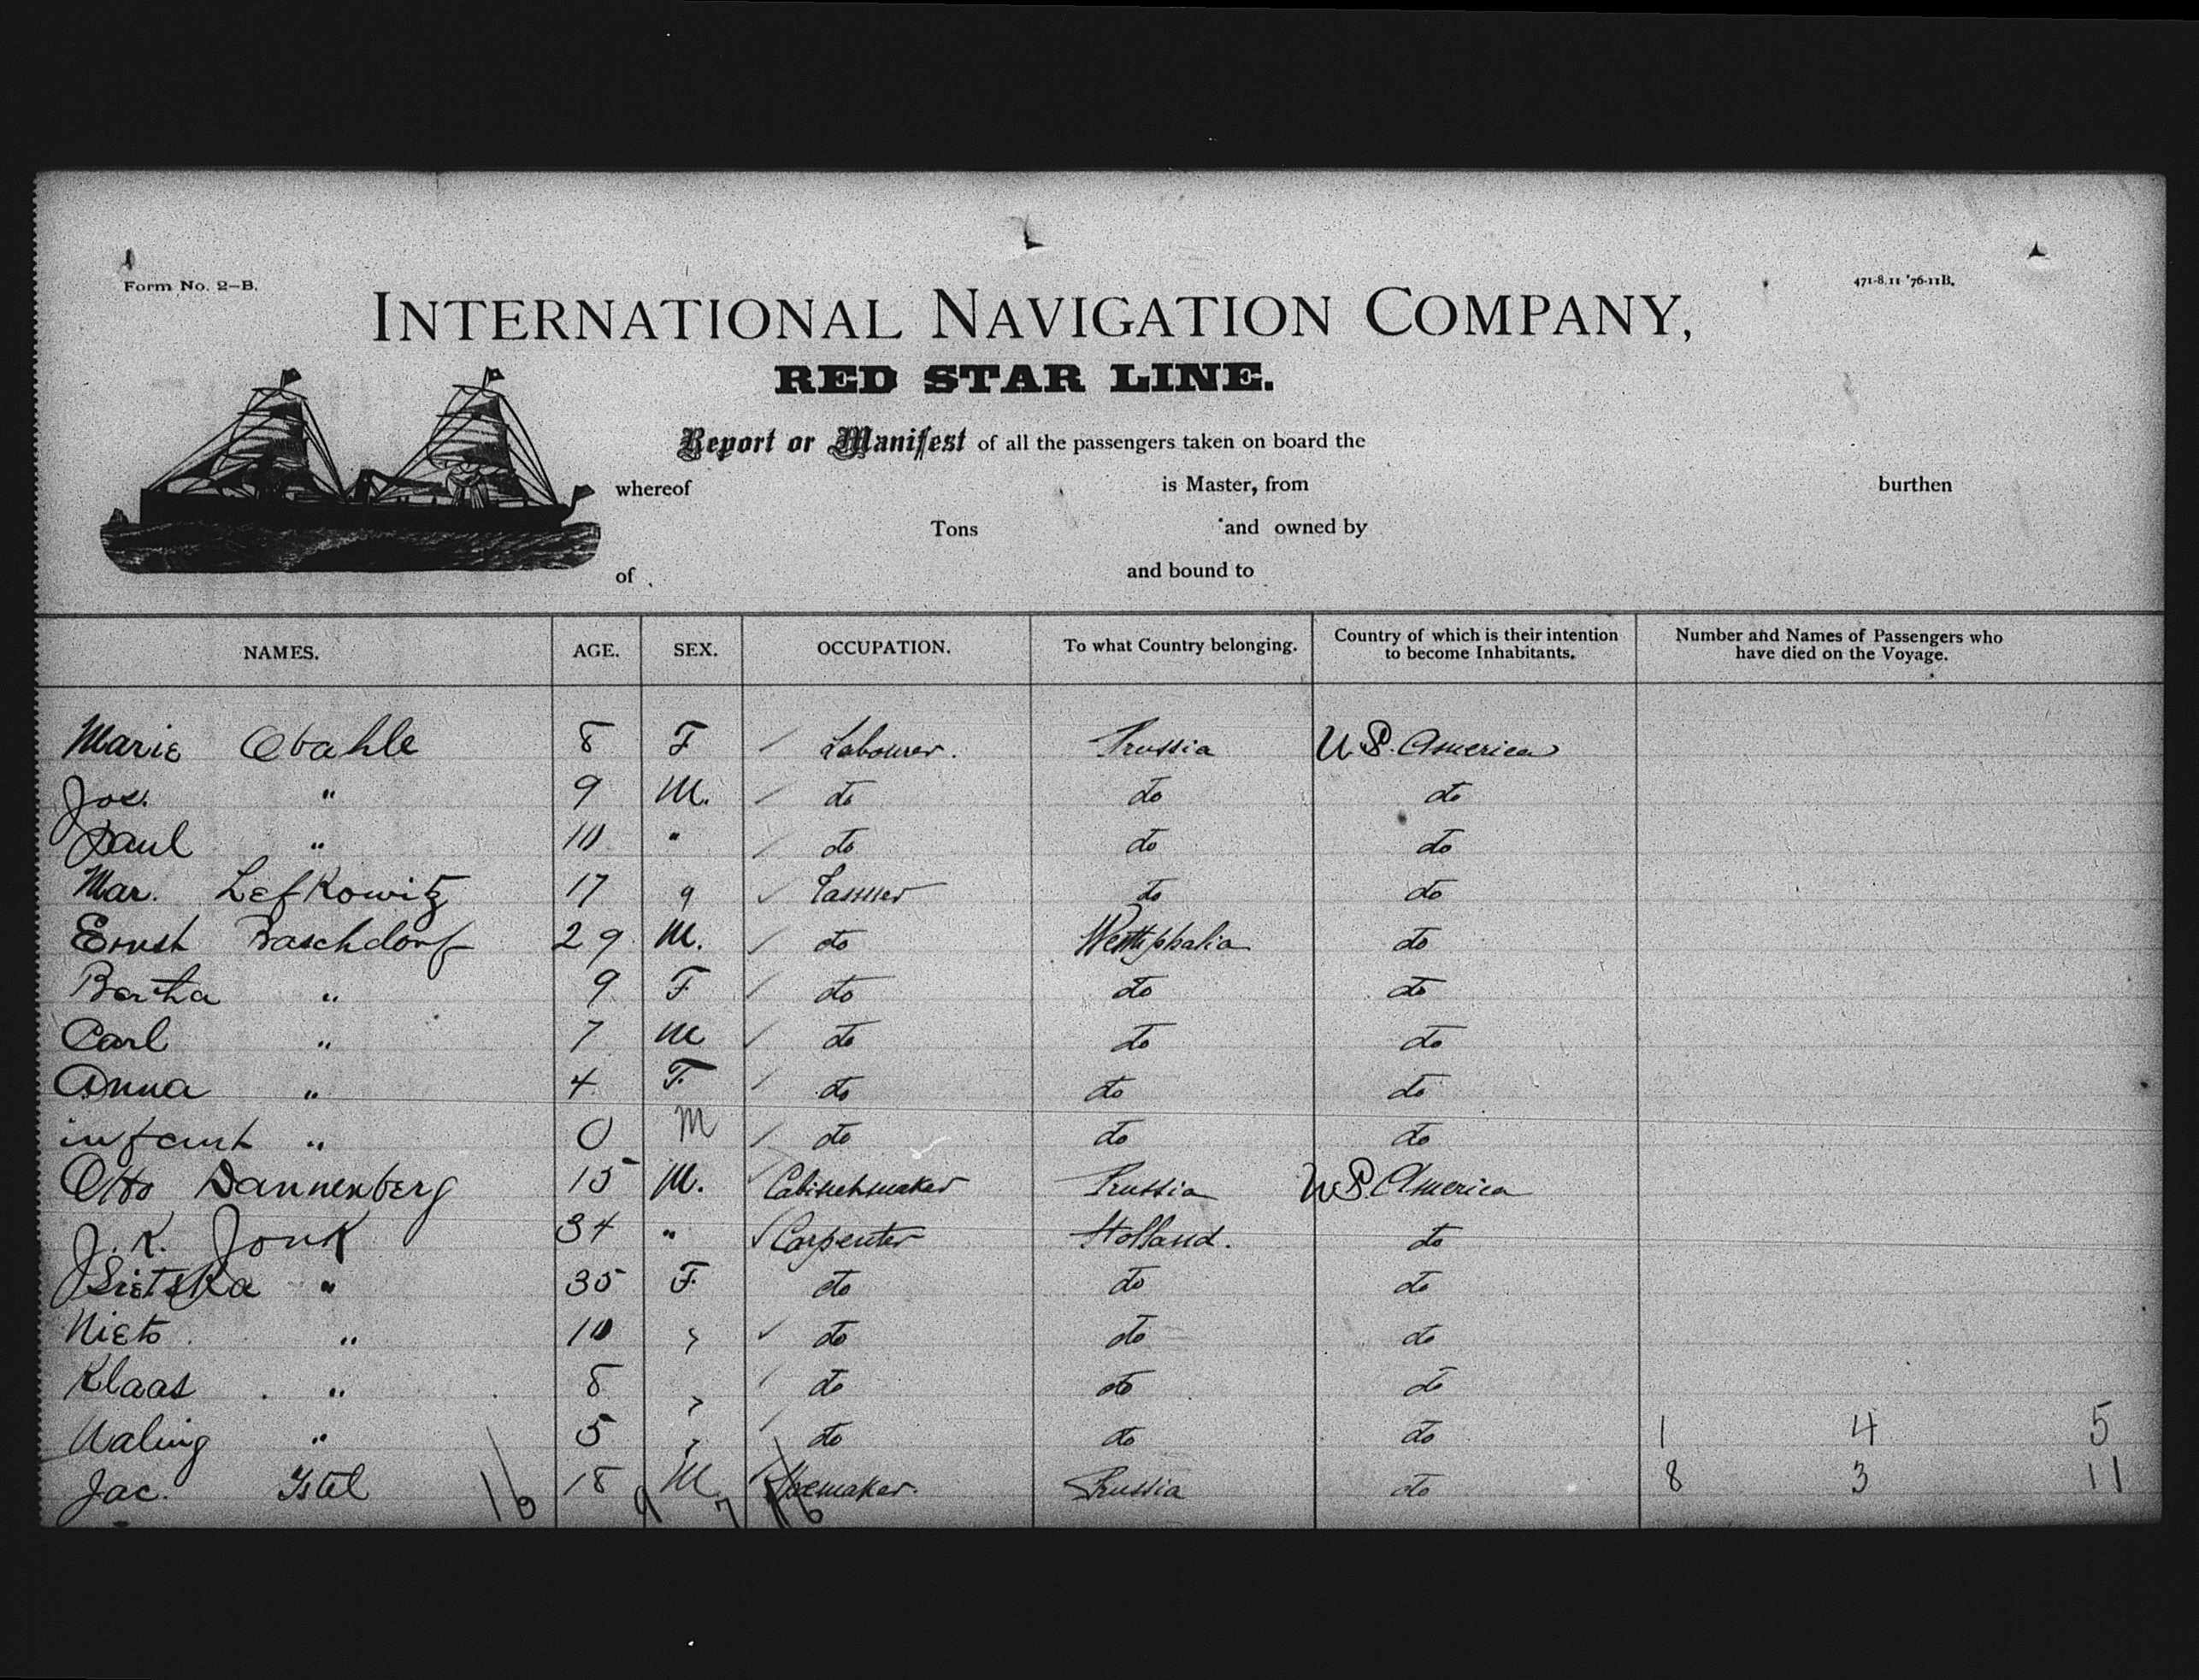 Form No. 2–B.
471-8.11 '76-11B.
INTERNATIONAL NAVIGATION COMPANY,
RED STAR LINE.
Report or Manifest of all the passengers taken on board the
whereof is Master, from burthen
Tons and owned by
of and bound to
NAMES. AGE. SEX. OCCUPATION. To what Country belonging. Country of which is their intention to become Inhabitants. Number and Names of Passengers who have died on the Voyage.
Marie 8 F Labourer. Prussia U S. America
Jos. " 9 M. do do do
Paul " 10 " do do do
Mar. Lefkowitz 17 do do
Ernst Baschdorf 29 M. do Westphalia do
Bertha " 9 F do do do
Carl " 7 M do do do
Anna " 4 F. do do do
infant " 0 M do do do
Otto Dannenberg 15 M. Cabinetmaker Prussia U S. America
J. K. Jonk 34 " Carpenter Holland. do
" 35 F. do do do
Niets " 10 " do do do
Klaas " 8 " do do do
Waling " 5 " do do do 1 4 5
Jac. Istel 18 M Shoemaker. Prussia do 8 3 11
16 9 7 16